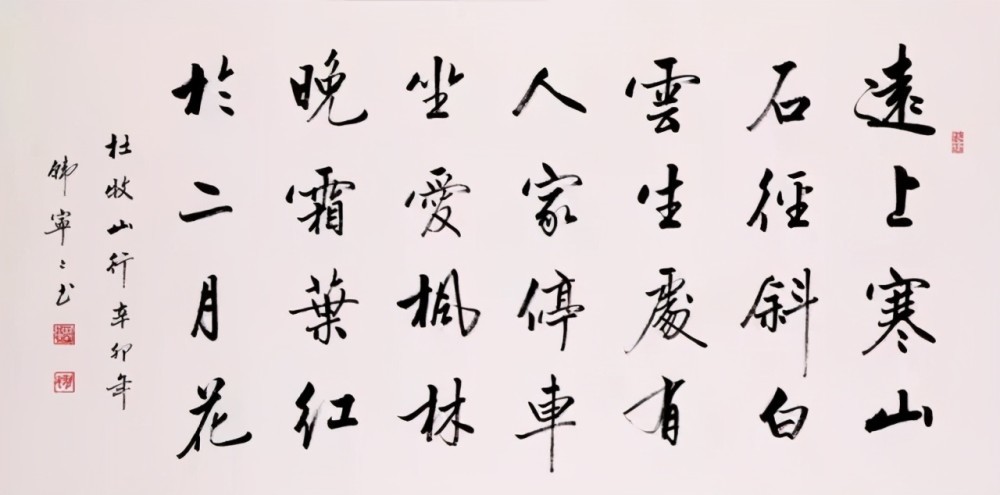 遠上寒山
石徑斜白
雲生處有
人家停車
坐愛楓林
晚霜葉紅
於二月花
杜牧山行辛卯年
韓寧寧書